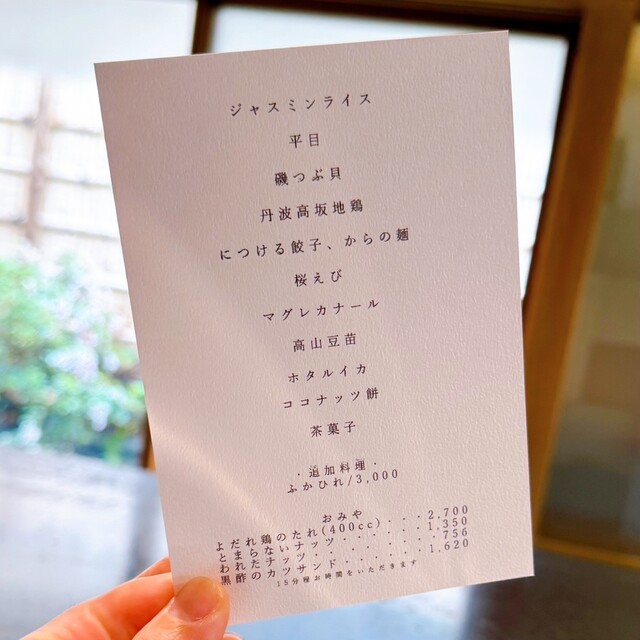 ジャスミンライス
平目
磯つぶ貝
丹波高坂地鶏
につける餃子、からの麺
桜えび
マグレカナール
高山豆苗
ホタルイカ
ココナッツ餅
茶菓子
・追加料理・
ふかひれ/3,000
おみや
よだれ鶏のたれ(400cc)・・・2,700
とまらないナッツ・・・・・・1,350
われたチップ・・・・・・・756
黒酢のカツサンド・・・・・1,620
15分程お時間をいただきます